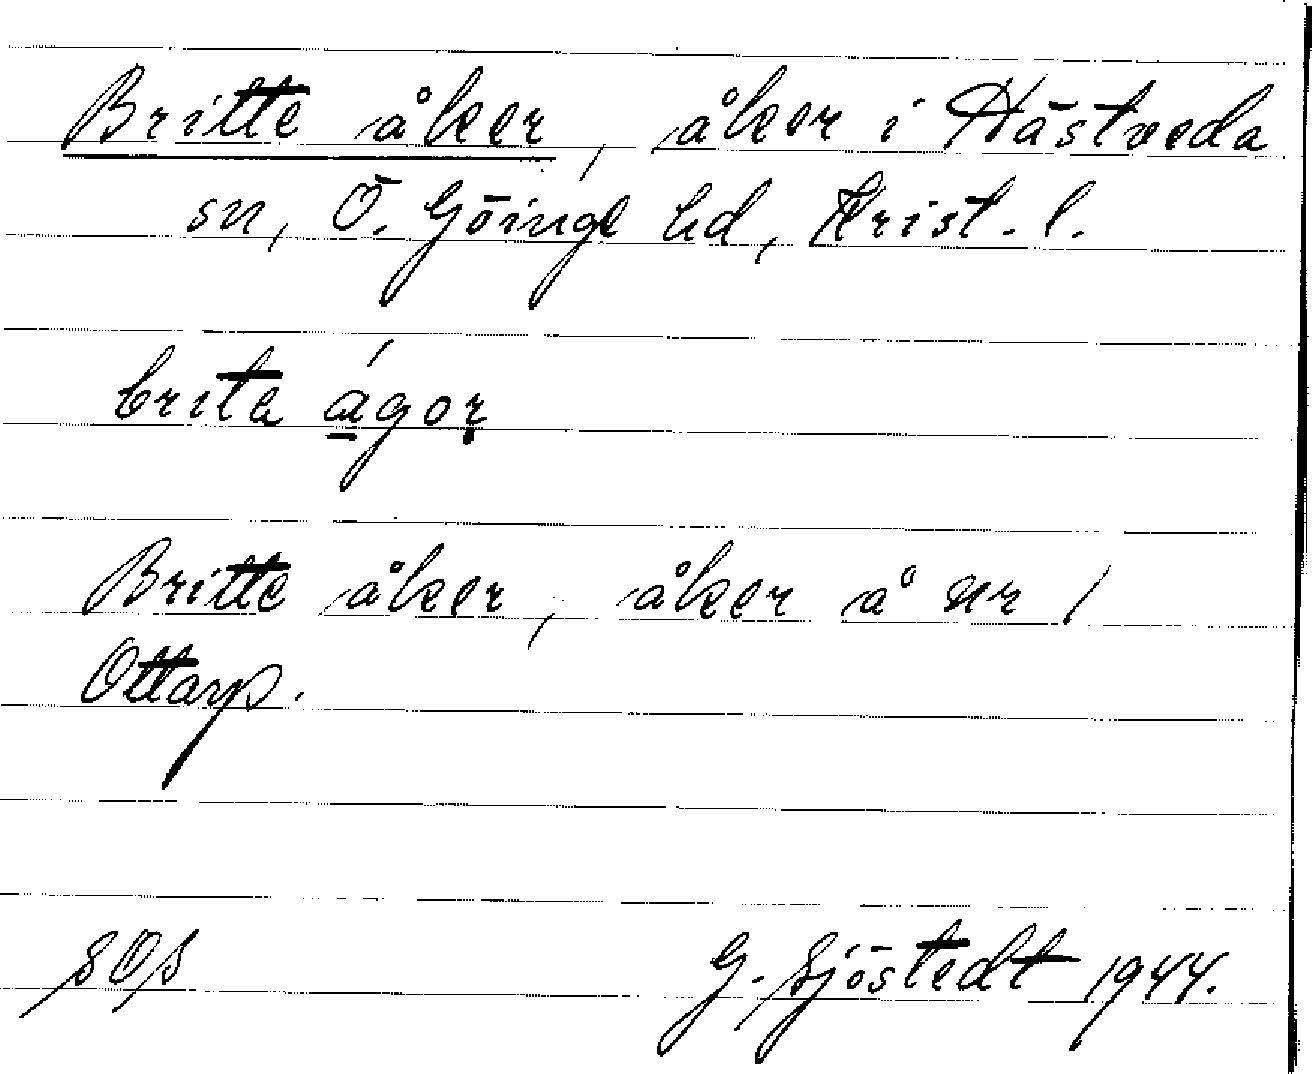 Britte åker, åker i Hästveda
sn, Ö. Göinge hd, Krist. l.
brita ágor
Britte åker, åker å nr 1
Ottarp.
SOS G. Sjöstedt 1944.